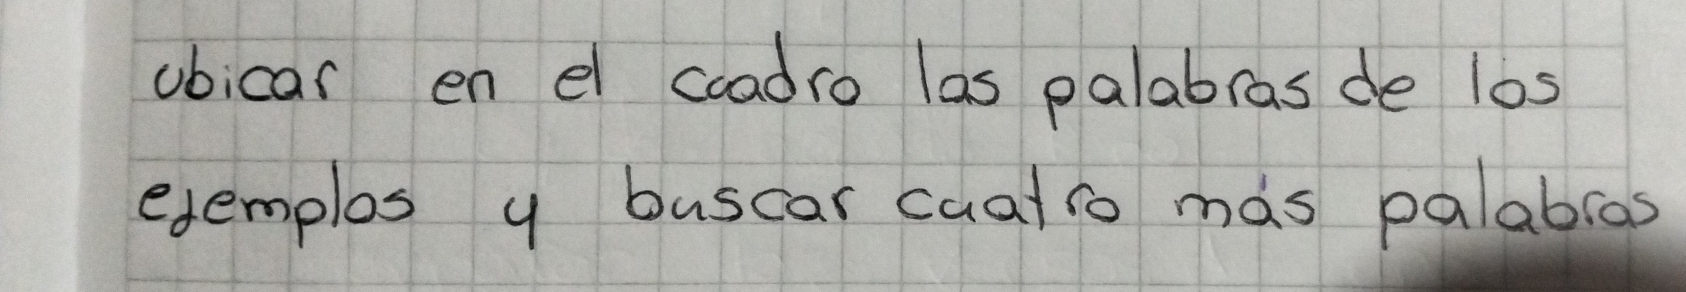 ubicar en el cuadro las palabras de los
ejemplos y buscar cuatro más palabras